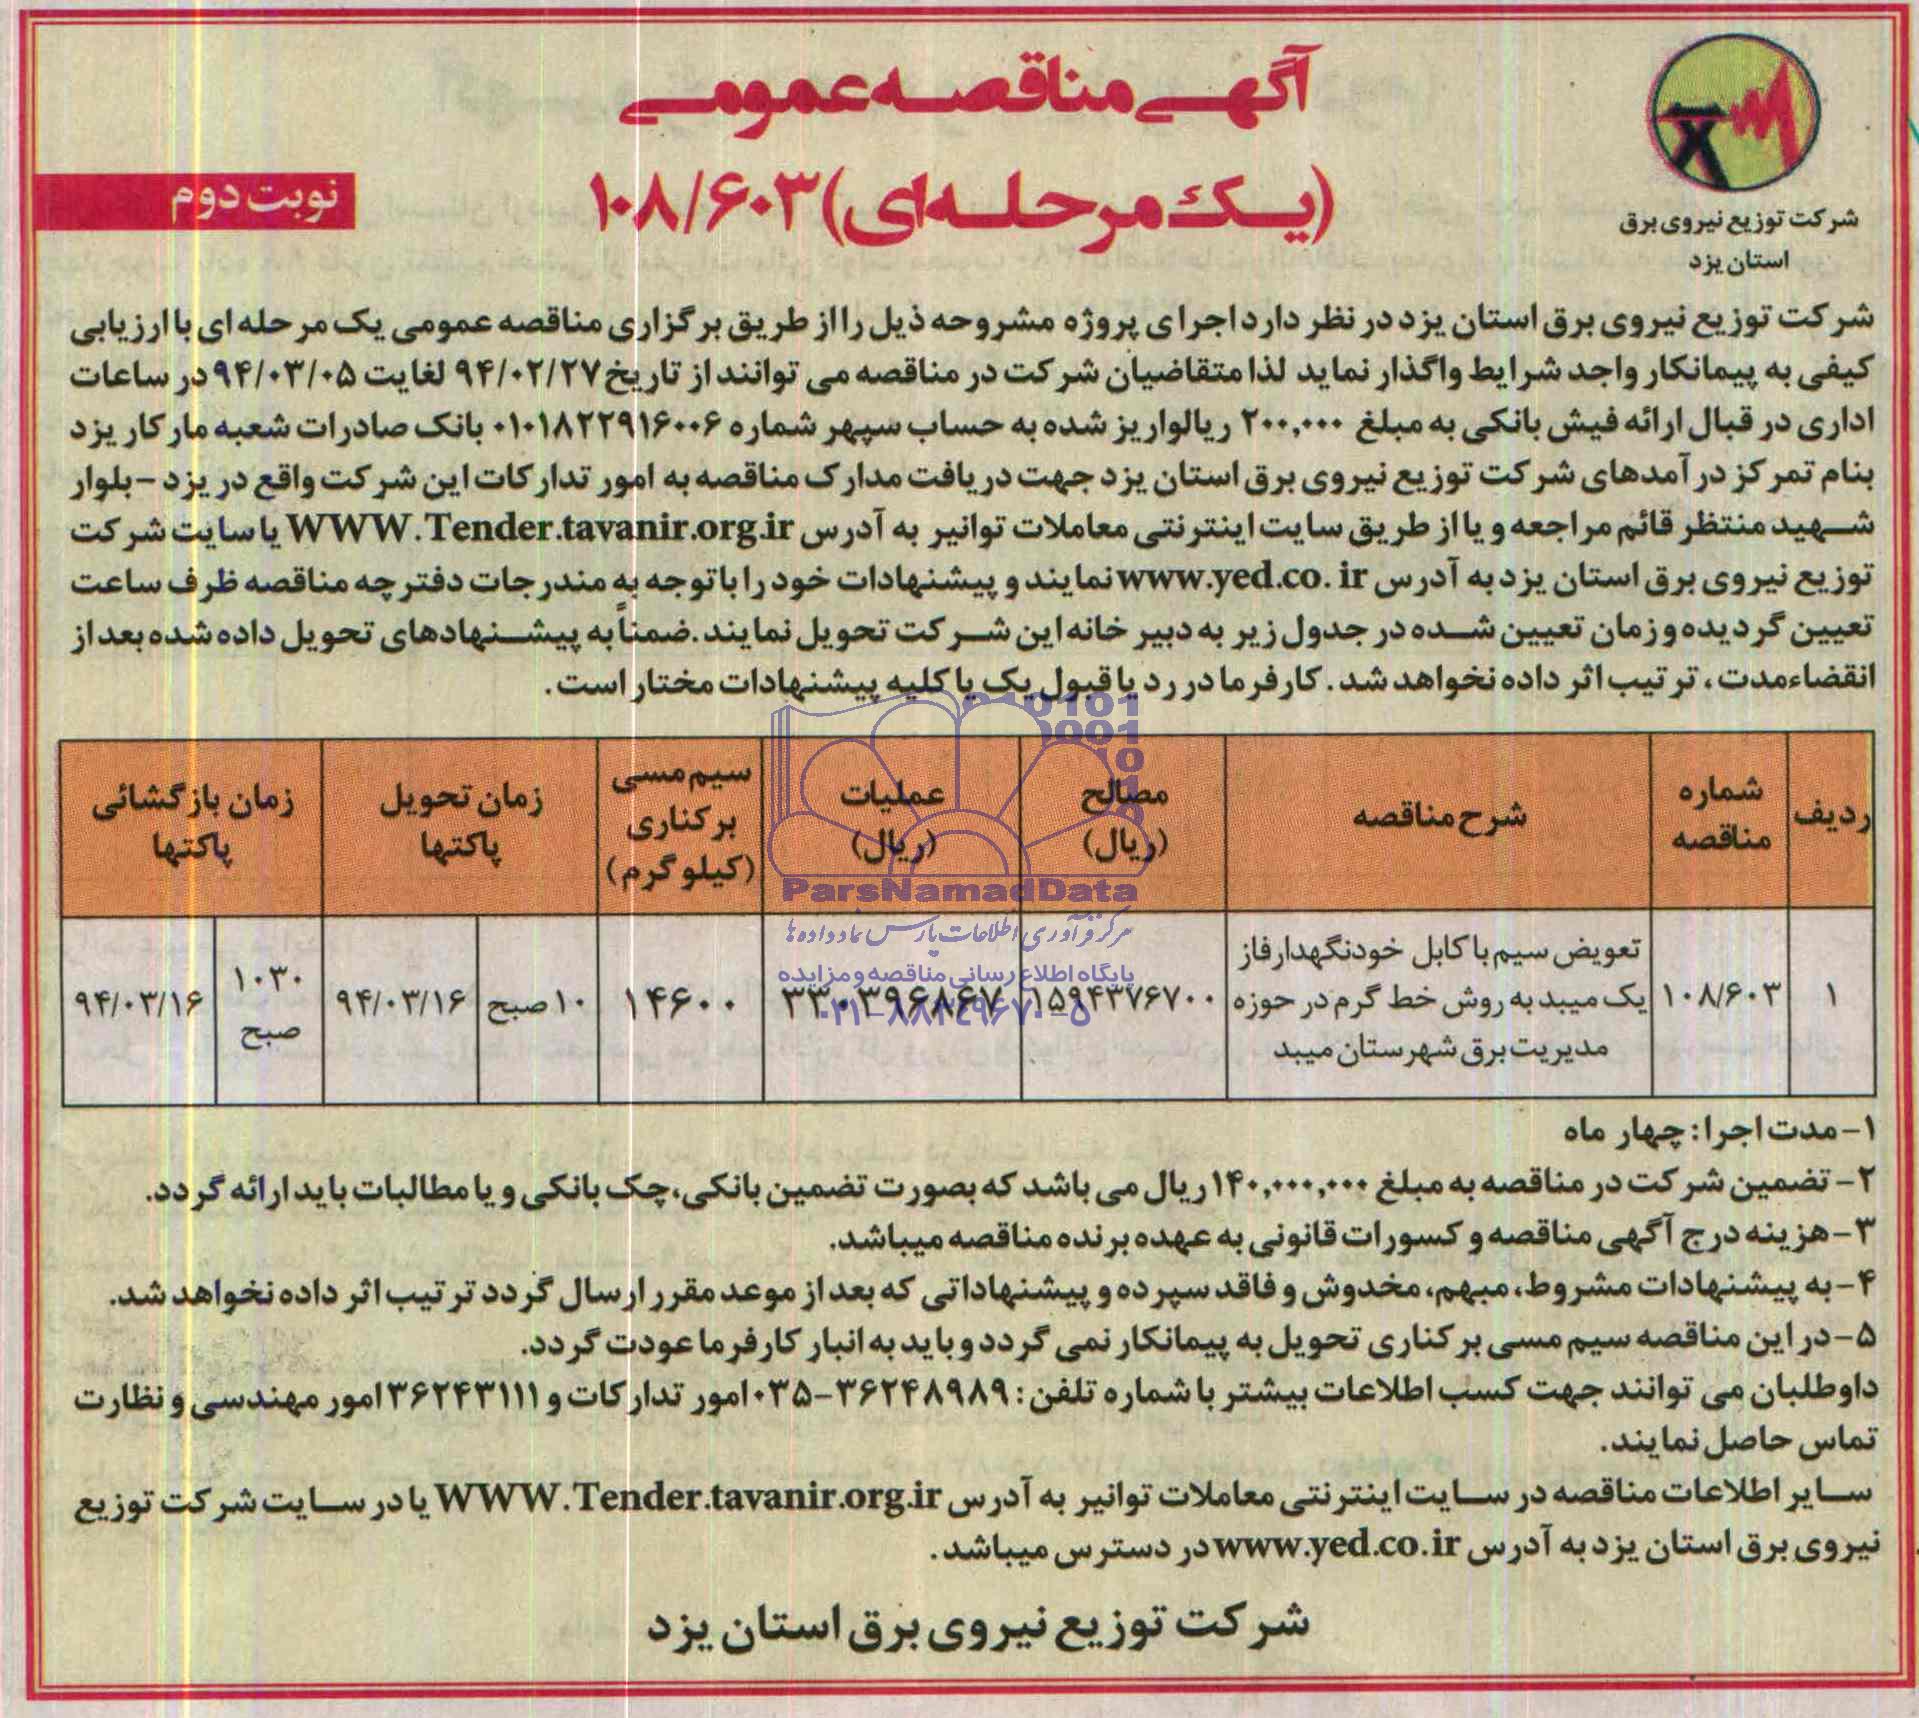 آگهی مناقصه عمومی
(یک مرحله‌ای) ۱۰۸/۶۰۳
نوبت دوم
شرکت توزیع نیروی برق
استان یزد
شرکت توزیع نیروی برق استان یزد در نظر دارد اجرای پروژه مشروحه ذیل را از طریق برگزاری مناقصه عمومی یک مرحله ای با ارزیابی
کیفی به پیمانکار واجد شرایط واگذار نماید لذا متقاضیان شرکت در مناقصه می توانند از تاریخ ۹۴/۰۲/۲۷ لغایت ۹۴/۰۳/۰۵ در ساعات
اداری در قبال ارائه فیش بانکی به مبلغ ۲۰۰,۰۰۰ ریال واریز شده به حساب سپهر شماره ۰۱۰۱۸۲۲۹۱۶۰۰۶ بانک صادرات شعبه مارکار یزد
بنام تمرکز درآمدهای شرکت توزیع نیروی برق استان یزد جهت دریافت مدارک مناقصه به امور تدارکات این شرکت واقع در یزد - بلوار
شهید منتظر قائم مراجعه و یا از طریق سایت اینترنتی معاملات توانیر به آدرس WWW.Tender.tavanir.org.ir یا سایت شرکت
توزیع نیروی برق استان یزد به آدرس www.yed.co. ir نمایند و پیشنهادات خود را باتوجه به مندرجات دفترچه مناقصه ظرف ساعت
تعیین گردیده و زمان تعیین شده در جدول زیر به دبیر خانه این شرکت تحویل نمایند. ضمناً به پیشنهادهای تحویل داده شده بعد از
انقضاء مدت، ترتیب اثر داده نخواهد شد. کارفرما در رد یا قبول یک یا کلیه پیشنهادات مختار است.
ردیف
شماره
مناقصه
شرح مناقصه
مصالح
(ریال)
عملیات
(ریال)
سیم مسی
برکناری
(کیلو گرم)
زمان تحویل
پاکتها
زمان بازگشائی
پاکتها
۱
۱۰۸/۶۰۳
تعویض سیم با کابل خودنگهدار فاز
یک میبد به روش خط گرم در حوزه
مدیریت برق شهرستان میبد
۱۵۹۴۳۷۶۷۰۰
۳۳۰۳۹۶۸۶۷
۱۴۶۰۰
۱۰ صبح
۹۴/۰۳/۱۶
۱۰۳۰
صبح
۹۴/۰۳/۱۶
ParsNamadData
مرکز فرآوری اطلاعات پارس نماد داده ها
پایگاه اطلاع رسانی مناقصه و مزایده
۰۲۱-۸۸۳۴۹۶۷۰-۵
۱- مدت اجرا: چهار ماه
۲- تضمین شرکت در مناقصه به مبلغ ۱۴۰,۰۰۰,۰۰۰ ریال می باشد که بصورت تضمین بانکی، چک بانکی و یا مطالبات باید ارائه گردد.
۳- هزینه درج آگهی مناقصه و کسورات قانونی به عهده برنده مناقصه میباشد.
۴- به پیشنهادات مشروط، مبهم، مخدوش و فاقد سپرده و پیشنهاداتی که بعد از موعد مقرر ارسال گردد ترتیب اثر داده نخواهد شد.
۵- در این مناقصه سیم مسی برکناری تحویل به پیمانکار نمی گردد و باید به انبار کارفرما عودت گردد.
داوطلبان می توانند جهت کسب اطلاعات بیشتر با شماره تلفن: ۳۶۲۴۸۹۸۹-۰۳۵ امور تدارکات و ۳۶۲۴۳۱۱۱ امور مهندسی و نظارت
تماس حاصل نمایند.
سایر اطلاعات مناقصه در سایت اینترنتی معاملات توانیر به آدرس WWW.Tender.tavanir.org.ir یا در سایت شرکت توزیع
نیروی برق استان یزد به آدرس www.yed.co.ir در دسترس میباشد.
شرکت توزیع نیروی برق استان یزد